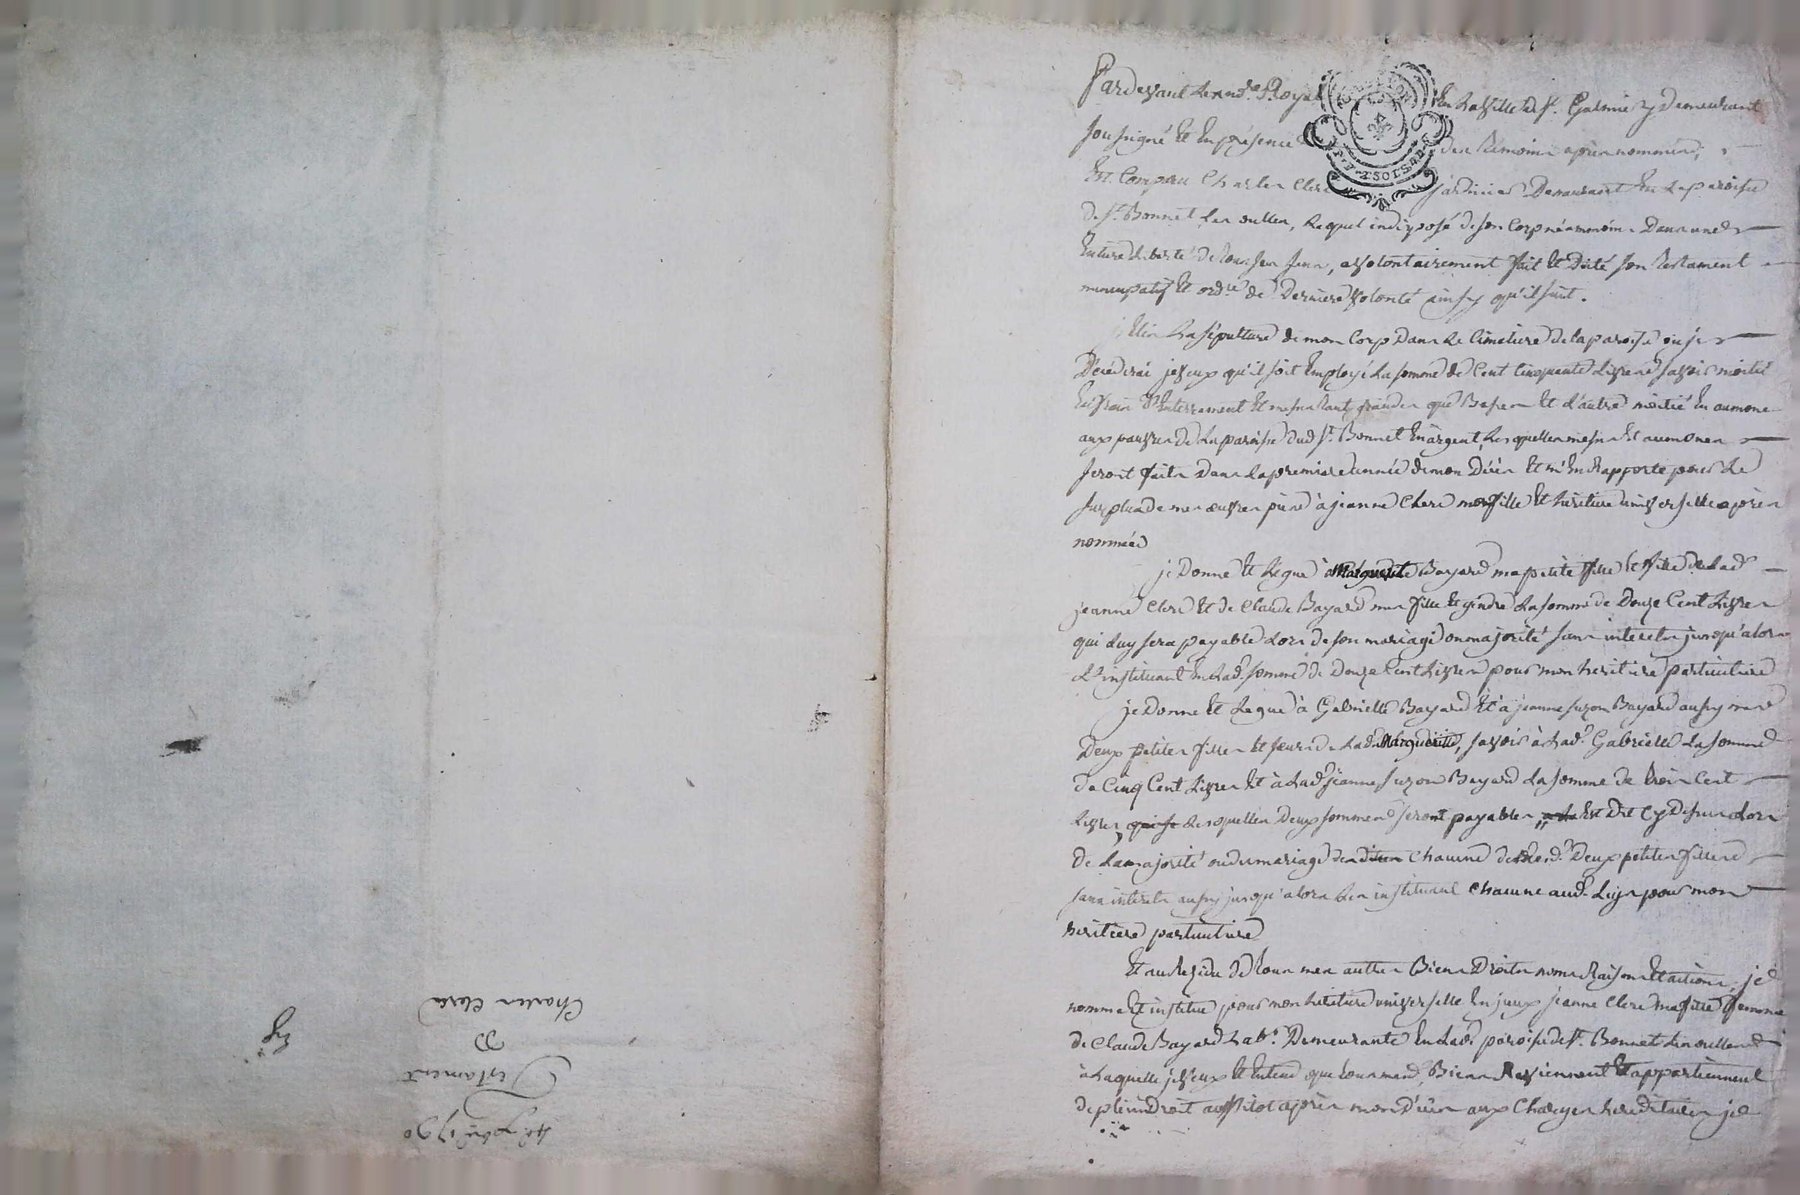 Pardevant Le nore Royal En La Ville de St. Galmier y demeurant
soussigné Et En présence des Témoins après nommés,
Est Comparu Charles Clere jardinier Demeurant En La paroisse
de St. Bonnet Les oulles, Lequel indisposé de son Corps néanmoins Dans une
Entiere Liberté de Tous ses sens, a volontairement fait Et Dicté son Testament
nuncupatif Et ordre de Derniere volonté ainsy qu'il suit.
j'Elis La sépulture de mon Corps Dans Le Cimetiere de la paroisse ou je
Décéderai je veux qu'il soit Employé La somme de Cent Cinquante Livres savoir moitié
En frais D'Enterrement Et messes tant grandes que Basses Et L'autre moitié En aumone
aux pauvres de La paroisse dud St. Bonnet En argent, Lesquelles messes Et aumones
seront faites Dans La premiere année de mon Décès Et m'En Rapporte pour Le
surplus de mes œuvres pies à jeanne Clere ma fille Et heritiere universelle après
nommée
je Donne Et Legue à Marguerite Bayard ma petite fille Et fille de Lad.
jeanne Clere Et de Claude Bayard mes fille Et gendre La somme de Douze Cent Livres
qui Luy sera payable Lors de son mariage ou majorité sans interets jusqu'alors
L'instituant En Lad. somme de Douze Cent Livres pour mon heritiere particuliere
je Donne Et Legue à Gabrielle Bayard Et à jeanne suzon Bayard aussy mes
Deux petites filles Et sœurs de Lad. Marguerite, savoir à Lad. Gabrielle La somme
de Cinq Cent Livres Et à Lad. jeanne suzon Bayard La somme de trois Cent
Livres, Lesquelles Deux sommes seront payables Est Dit Cy Dessus Lors
de La majorité ou du mariage de Chacune de mesd. Deux petites filles
sans interets aussy jusqu'alors Les instituant Chacune aud. Legs pour mon
heritiere particuliere
Et au Residu de tous mes autres Biens Droits noms Raisons Et actions, je
nomme Et institue pour mon heritiere universelle En iceux jeanne Clere ma fille femme
de Claude Bayard Labr. Demeurante En Lad. paroisse de St. Bonnet Les oulles
à Laquelle je veux Et Entend que tous mesd. Biens Reviennent Et appartiennent
de plein Droit aussitot après mon Décès aux Charges hereditaires je
1790
Testament
D
Charles Clere
Exp.